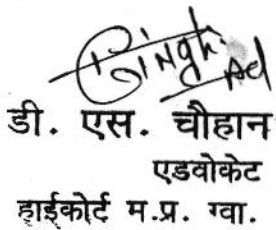 Singh
Ad
डी. एस. चौहान
एडवोकेट
हाईकोर्ट म.प्र. ग्वा.